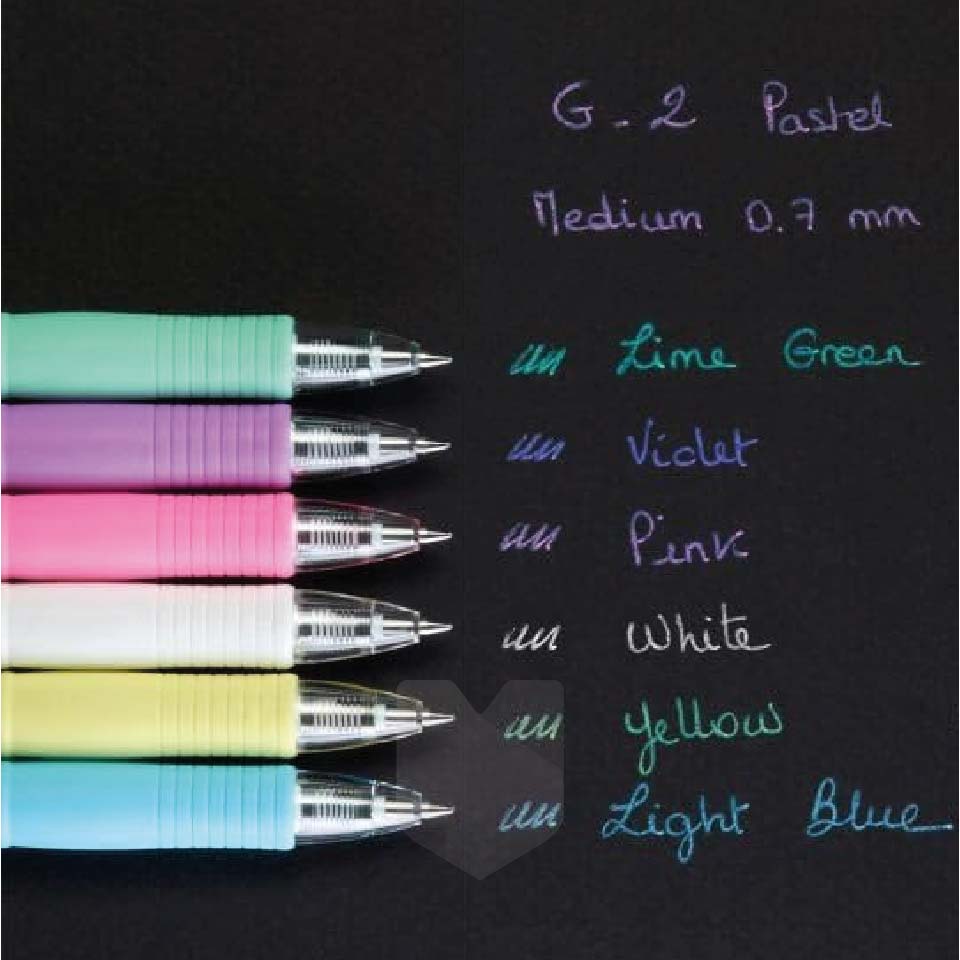 G-2 Pastel
Medium 0.7 mm
Lime Green
Violet
Pink
White
Yellow
Light Blue